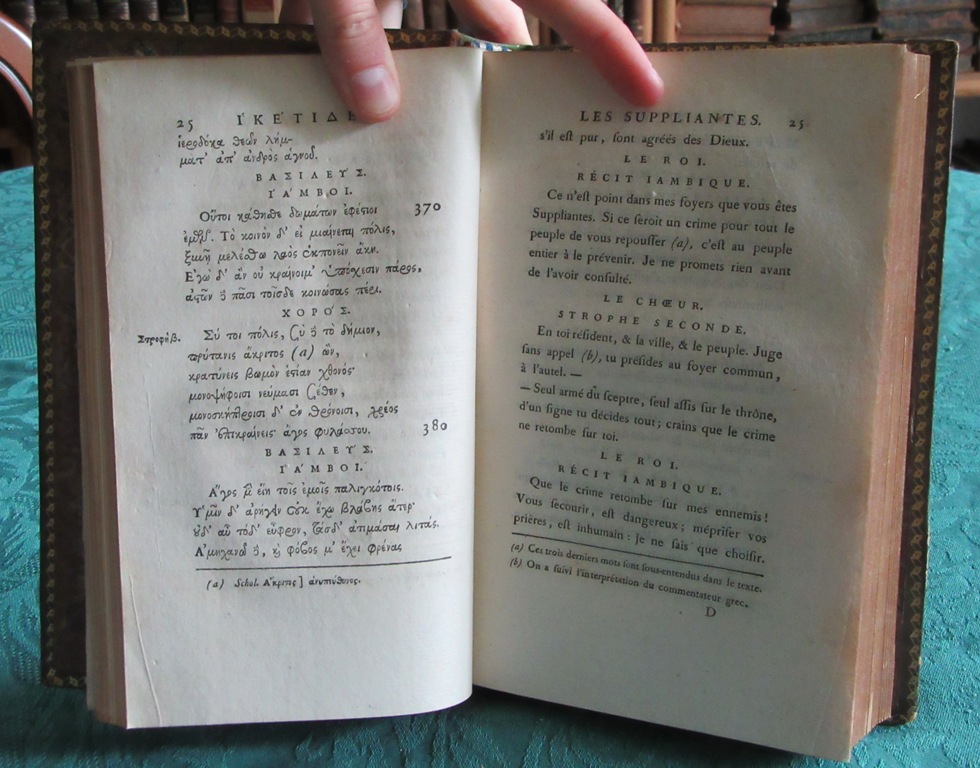 25 ἹΚΕΤΙΔΕ
ἱεροδόκα θεῶν λήμ-
ματ' ἀπ' ἀνδρὸς ἁγνοῦ.
ΒΑΣΙΛΕΥ'Σ.
ΙΑ'ΜΒΟΙ.
Οὔτοι κάθησθε δωμάτων ἐφέστιοι 370
ἐμῶν. Τὸ κοινὸν δ' εἰ μιαίνεται πόλις,
ξυνῇ μελέσθω λαὸς ἐκπονεῖν ἄκη.
Ἐγὼ δ' ἂν οὐ κραίνοιμ' ὑπόσχεσιν πάρος,
ἀστῶν δὲ πᾶσι τοῖσδε κοινώσας πέρι.
ΧΟΡΟ'Σ.
Στροφὴ β. Σύ τοι πόλις, σὺ δὲ τὸ δήμιον,
πρύτανις ἄκριτος (a) ὢν,
κρατύνεις βωμὸν ἑστίαν χθονὸς
μονοψήφοισι νεύμασι σέθεν,
μονοσκήπτροισι δ' ἐν θρόνοισι, χρέος
πᾶν ἐπικραίνεις· ἄγος φυλάσσου. 380
ΒΑΣΙΛΕΥ'Σ.
ΙΑ'ΜΒΟΙ.
Ἄγος μὲν εἴη τοῖς ἐμοῖς παλιγκότοις.
Ὑμῖν δ' ἀρήγειν οὐκ ἔχω βλάβης ἄτερ·
οὐδ' αὖ τόδ' εὖφρον, τάσδ' ἀτιμάσαι λιτάς.
Ἀμηχανῶ δὲ, καὶ φόβος μ' ἔχει φρένας
(a) Schol. Ἄκριτος] ἀνυπεύθυνος.
LES SUPPLIANTES. 25
s'il est pur, sont agréés des Dieux.
LE ROI.
RÉCIT IAMBIQUE.
Ce n'est point dans mes foyers que vous êtes
Suppliantes. Si ce seroit un crime pour tout le
peuple de vous repousser (a), c'est au peuple
entier à le prévenir. Je ne promets rien avant
de l'avoir consulté.
LE CHŒUR.
STROPHE SECONDE.
En toi résident, & la ville, & le peuple. Juge
sans appel (b), tu présides au foyer commun,
à l'autel. —
— Seul armé du sceptre, seul assis sur le thrône,
d'un signe tu décides tout; crains que le crime
ne retombe sur toi.
LE ROI.
RÉCIT IAMBIQUE.
Que le crime retombe sur mes ennemis!
Vous secourir, est dangereux; mépriser vos
prières, est inhumain: je ne sais que choisir.
(a) Ces trois derniers mots sont sous-entendus dans le texte.
(b) On a suivi l'interprétation du commentateur grec.
D